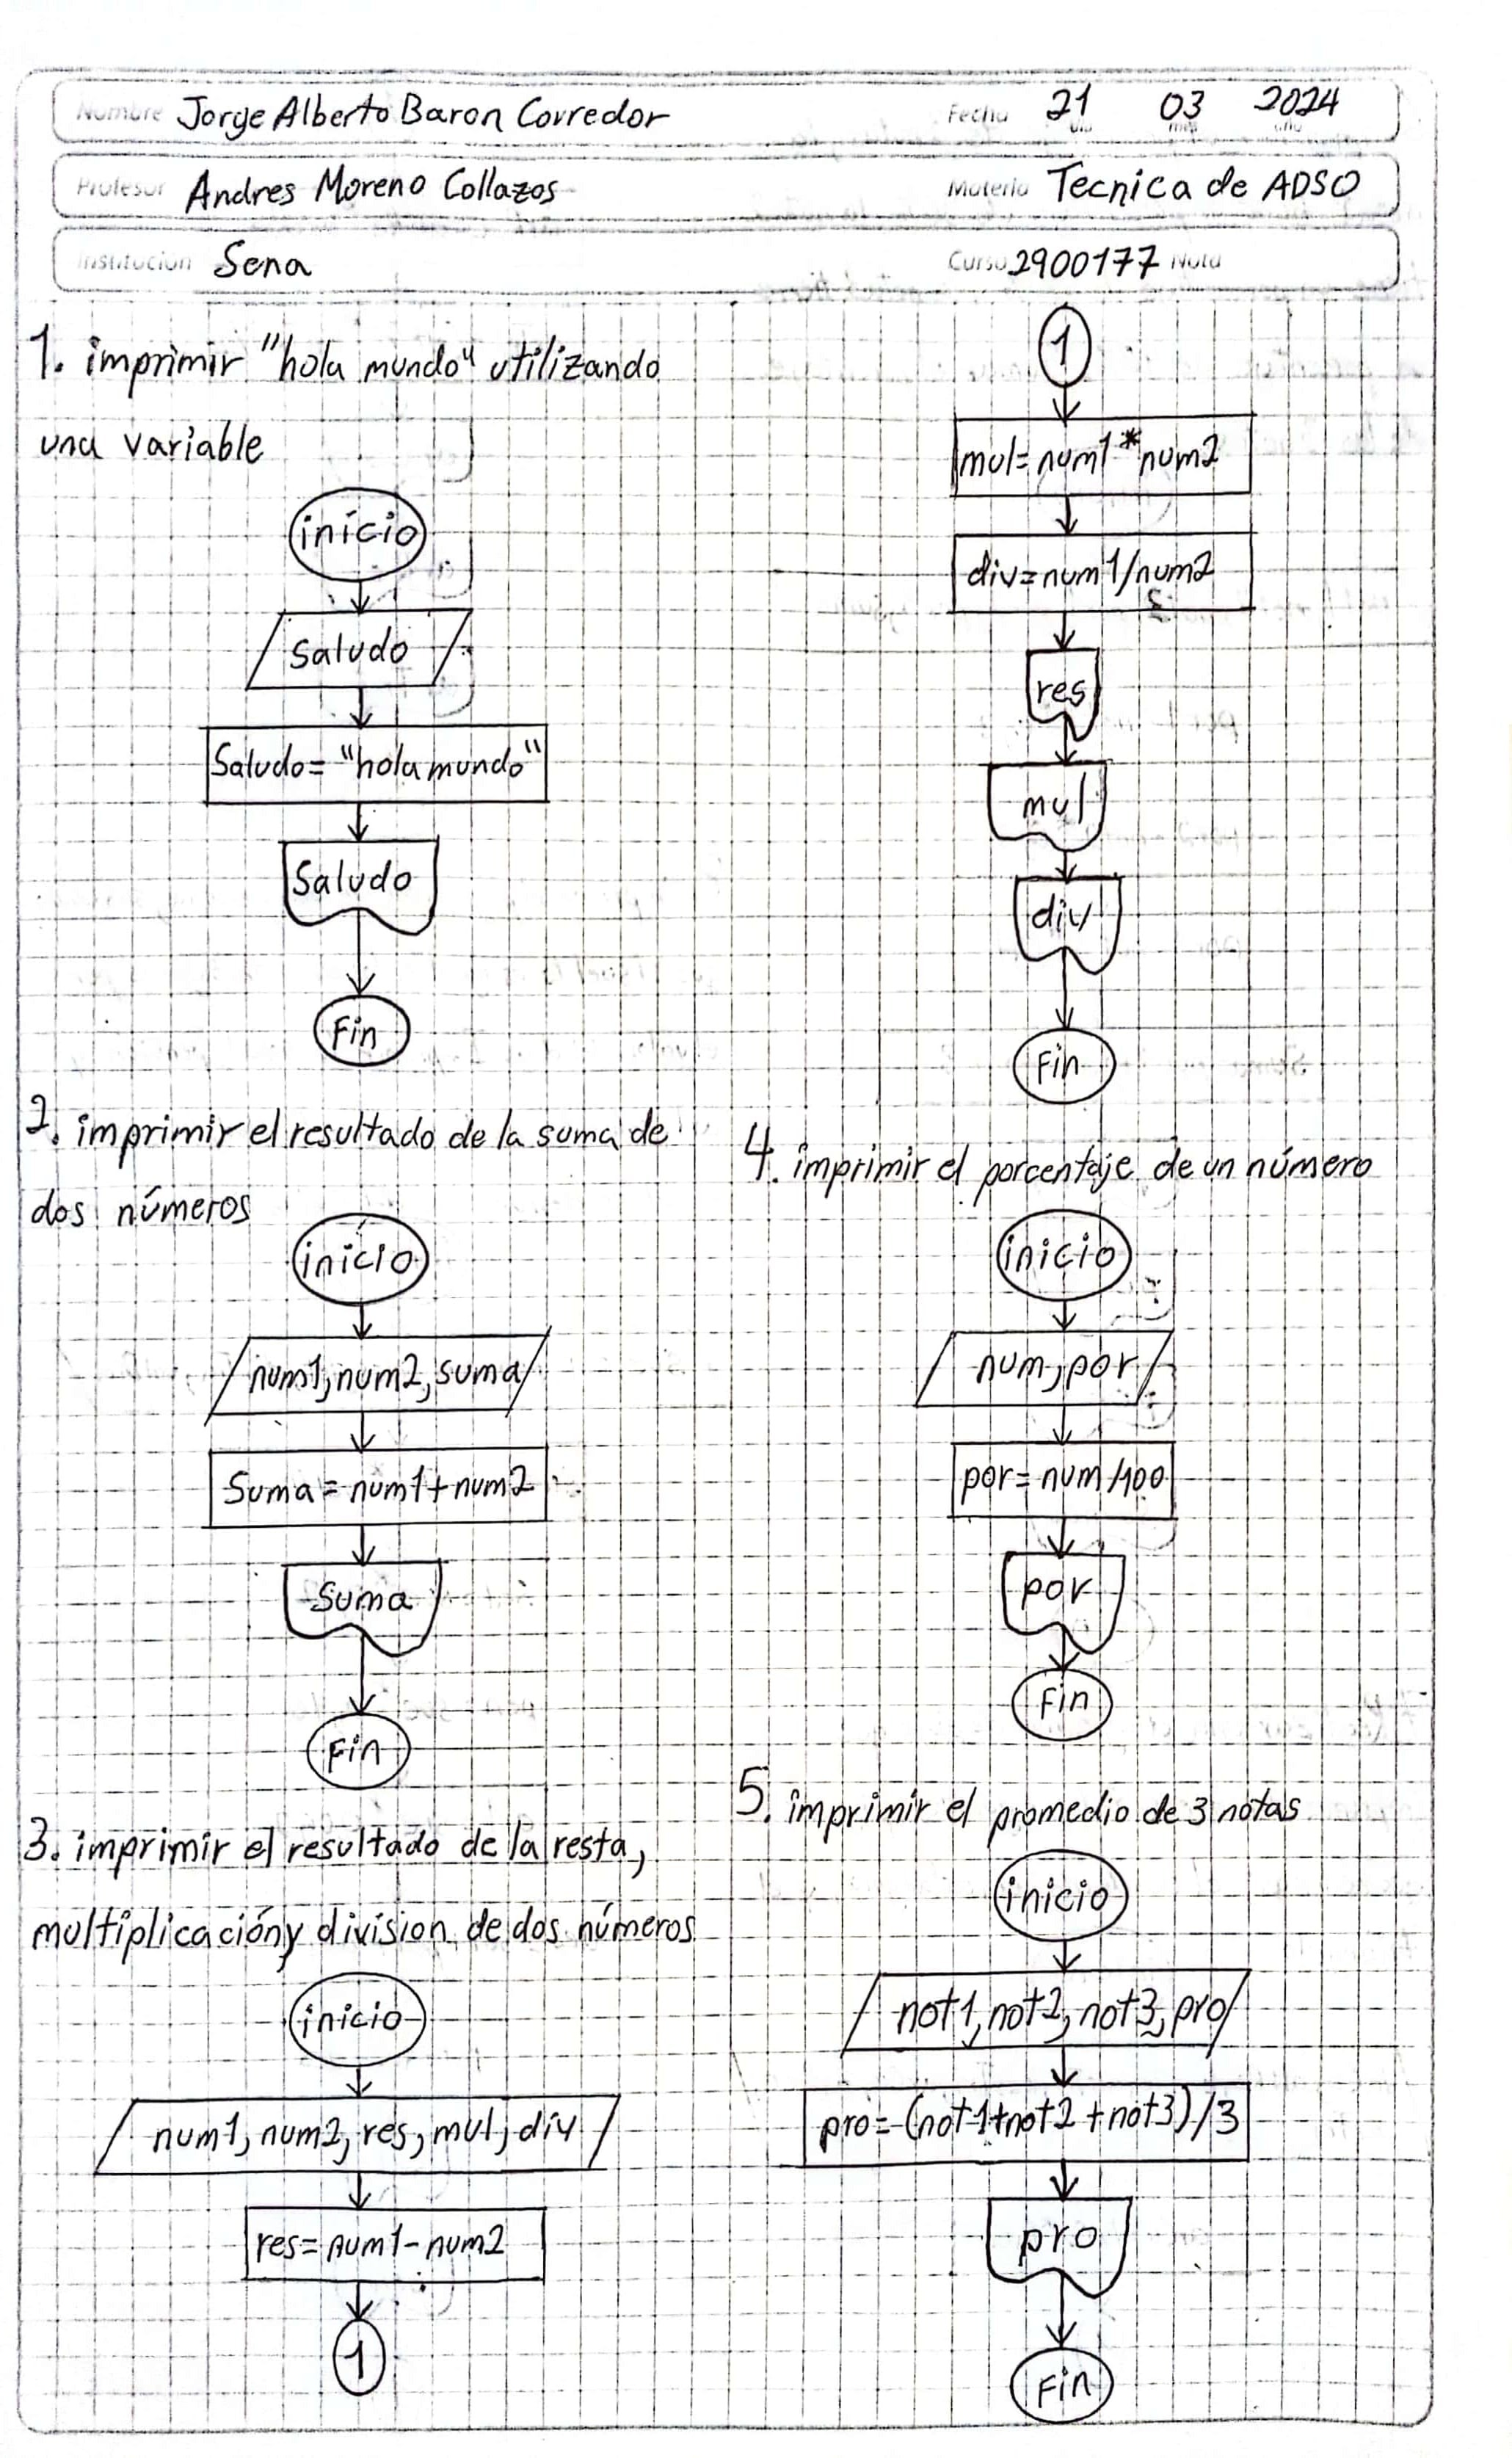 Nombre Jorge Alberto Baron Corredor Fecha 21 03 2024
día mes año
Profesor Andres Moreno Collazos Materia Tecnica de ADSO
Institución Sena Curso 2900177 Nota
1. imprimir "hola mundo" utilizando
una variable
inicio
Saludo
Saludo= "hola mundo"
Saludo
Fin
2. imprimir el resultado de la suma de
dos números
inicio
num1, num2, suma
Suma = num1+num2
Suma
Fin
3. imprimir el resultado de la resta,
multiplicación y division de dos números
inicio
num1, num2, res, mul, div
res= num1-num2
1
1
mul= num1*num2
div=num1/num2
res
mul
div
Fin
4. imprimir el porcentaje de un número
inicio
num, por
por= num/100
por
Fin
5. imprimir el promedio de 3 notas
inicio
not1, not2, not3, pro
pro=(not1+not2+not3)/3
pro
Fin